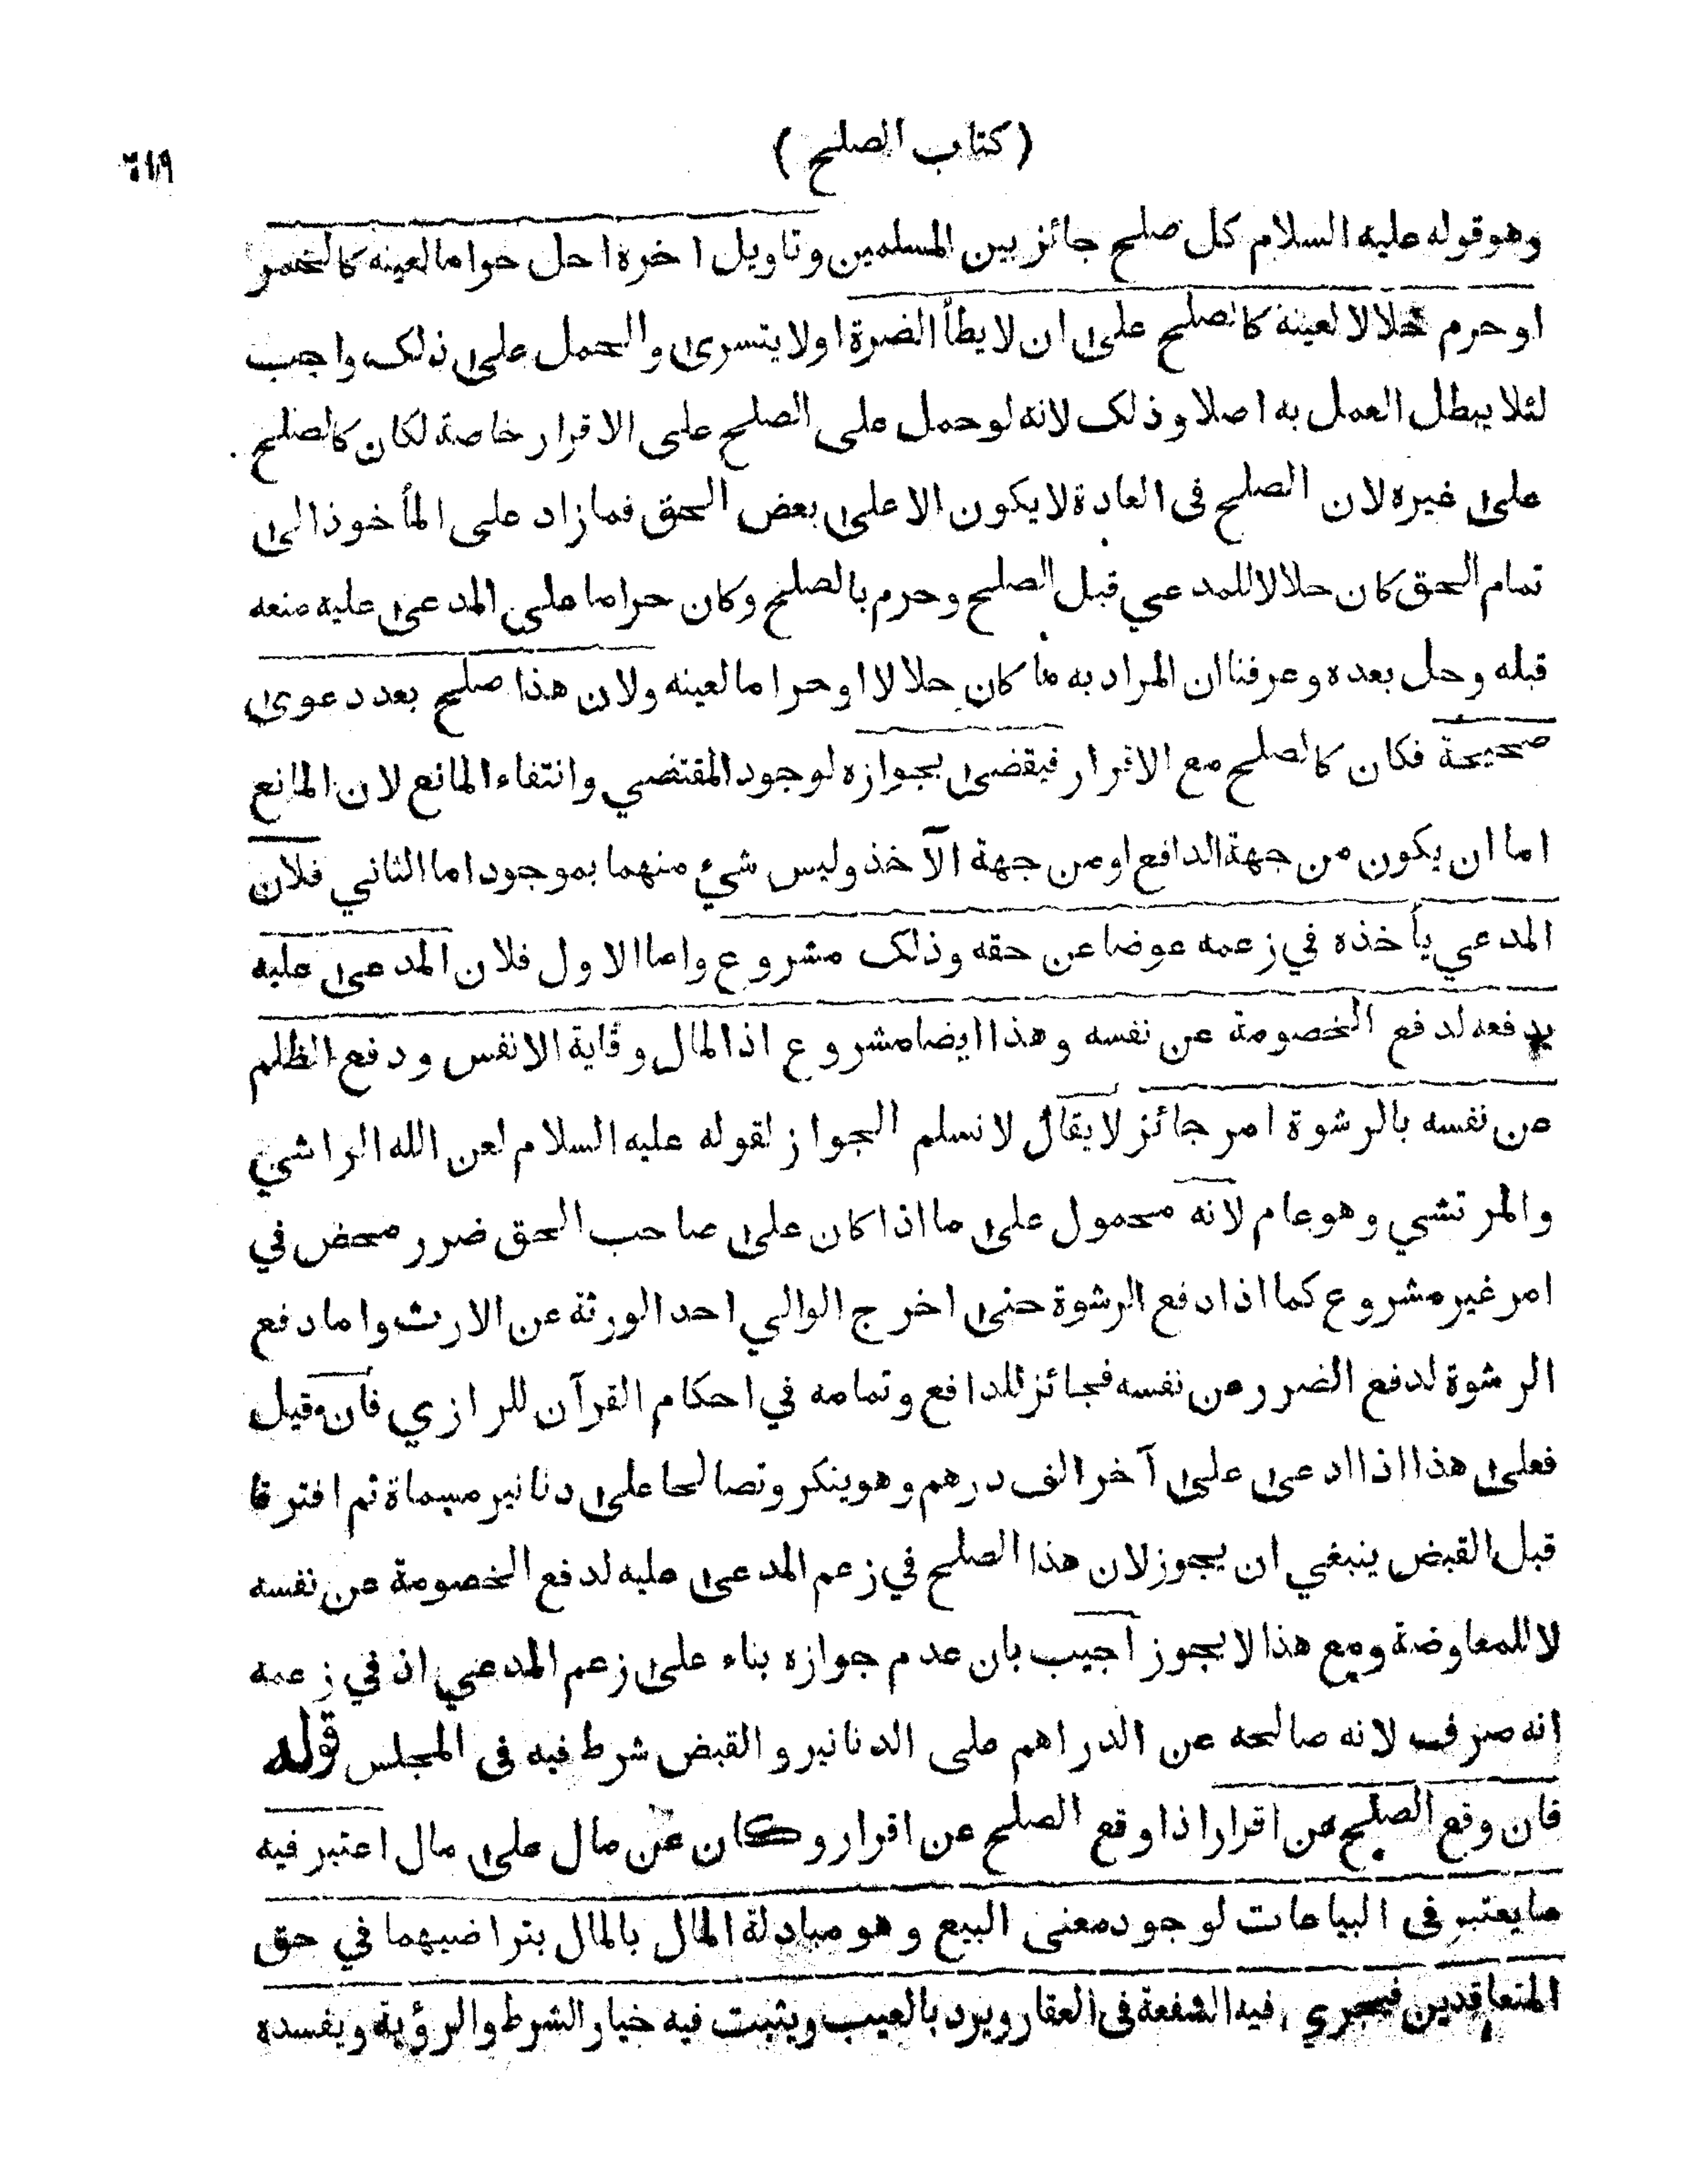 (كتاب الصلح)
٦١٩
وهو قوله عليه السلام كل صلح جائز بين المسلمين وتاويل اخره احل حراما لعينه كالخمر
او حرم حلالا لعينه كالصلح على ان لا يطأ الضرة او لا يتسرى والحمل على ذلك واجب
لئلا يبطل العمل به اصلا وذلك لانه لو حمل على الصلح على الاقرار خاصة لكان كالصلح
على غيره لان الصلح فى العادة لا يكون الا على بعض الحق فما زاد على المأخوذ الى
تمام الحق كان حلالا للمدعي قبل الصلح وحرم بالصلح وكان حراما على المدعى عليه منعه
قبله وحل بعده وعرفنا ان المراد به ما كان حلالا او حراما لعينه ولان هذا صلح بعد دعوى
صحيحة فكان كالصلح مع الاقرار فيقضى بجوازه لوجود المقتضي وانتفاء المانع لان المانع
اما ان يكون من جهة الدافع او من جهة الآخذ وليس شيء منهما بموجود اما الثاني فلان
المدعي يأخذه في زعمه عوضا عن حقه وذلك مشروع واما الاول فلان المدعى عليه
يدفعه لدفع الخصومة عن نفسه وهذا ايضا مشروع اذ المال وقاية الانفس ودفع الظلم
عن نفسه بالرشوة امر جائز لا يقال لا نسلم الجواز لقوله عليه السلام لعن الله الراشي
والمرتشي وهو عام لانه محمول على ما اذا كان على صاحب الحق ضرر محض في
امر غير مشروع كما اذا دفع الرشوة حتى اخرج الوالي احد الورثة عن الارث واما دفع
الرشوة لدفع الضرر عن نفسه فجائز للدافع وتمامه في احكام القرآن للرازي فان قيل
فعلى هذا اذا ادعى على آخر الف درهم وهو ينكر وتصالحا على دنانير مسماة ثم افترقا
قبل القبض ينبغي ان يجوز لان هذا الصلح في زعم المدعى عليه لدفع الخصومة عن نفسه
لا للمعاوضة ومع هذا لا يجوز اجيب بان عدم جوازه بناء على زعم المدعي اذ في زعمه
انه صرف لانه صالحه عن الدراهم على الدنانير والقبض شرط فيه فى المجلس قوله
فان وقع الصلح عن اقرار اذا وقع الصلح عن اقرار وكان عن مال على مال اعتبر فيه
ما يعتبر فى البياعات لوجود معنى البيع وهو مبادلة المال بالمال بتراضيهما في حق
المتعاقدين فيجري فيه الشفعة فى العقار ويرد بالعيب ويثبت فيه خيار الشرط والرؤية ويفسده